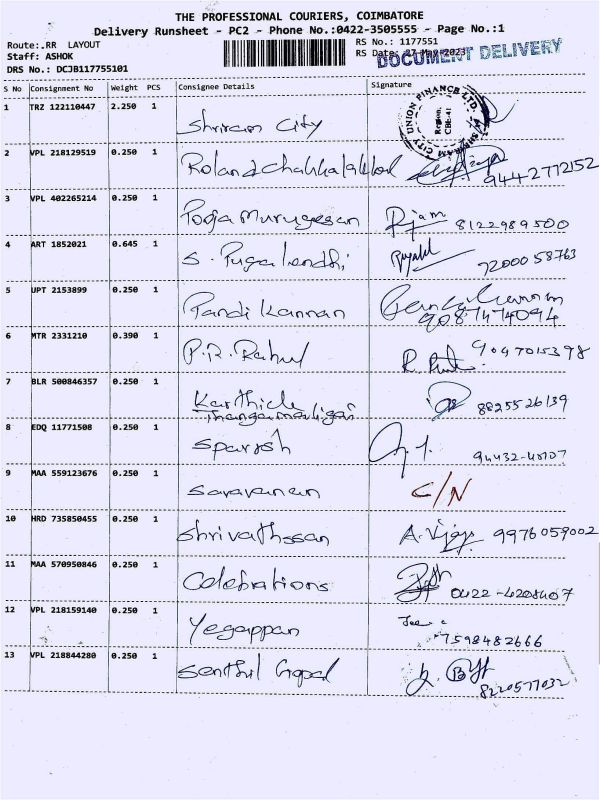 THE PROFESSIONAL COURIERS, COIMBATORE
Delivery Runsheet - PC2 - Phone No.:0422-3505555 - Page No.:1
Route:.RR LAYOUT RS No.: 1177551
Staff: ASHOK RS Date: 27-May-2023
DOCUMENT DELIVERY
DRS No.: DCJB117755101
S No Consignment No Weight PCS Consignee Details Signature
1 TRZ 122110447 2.250 1 Shriram City
SHRIRAM CITY UNION FINANCE LTD. Region. CBE-41
2 VPL 218129519 0.250 1 Roland 9442772152
3 VPL 402265214 0.250 1 Pooja Murugesan 8122989500
4 ART 1852021 0.645 1 S. Pugalendhi 7200058763
5 UPT 2153899 0.250 1 Pandi Kannan 9087474094
6 MTR 2331210 0.390 1 P.R. Rahul 9047015398
7 BLR 500846357 0.250 1 Karthick Thangamaligai 8825526139
8 EDQ 11771508 0.250 1 Sparsh
9 MAA 559123676 0.250 1 Saravanan C/N
10 HRD 735850455 0.250 1 Shrivathssan A. Vijay 9976059002
11 MAA 570950846 0.250 1 Celebrations 0422-4208407
12 VPL 218159140 0.250 1 Yegappan 7598482666
13 VPL 218844280 0.250 1 Senthil Gopal 8220577032